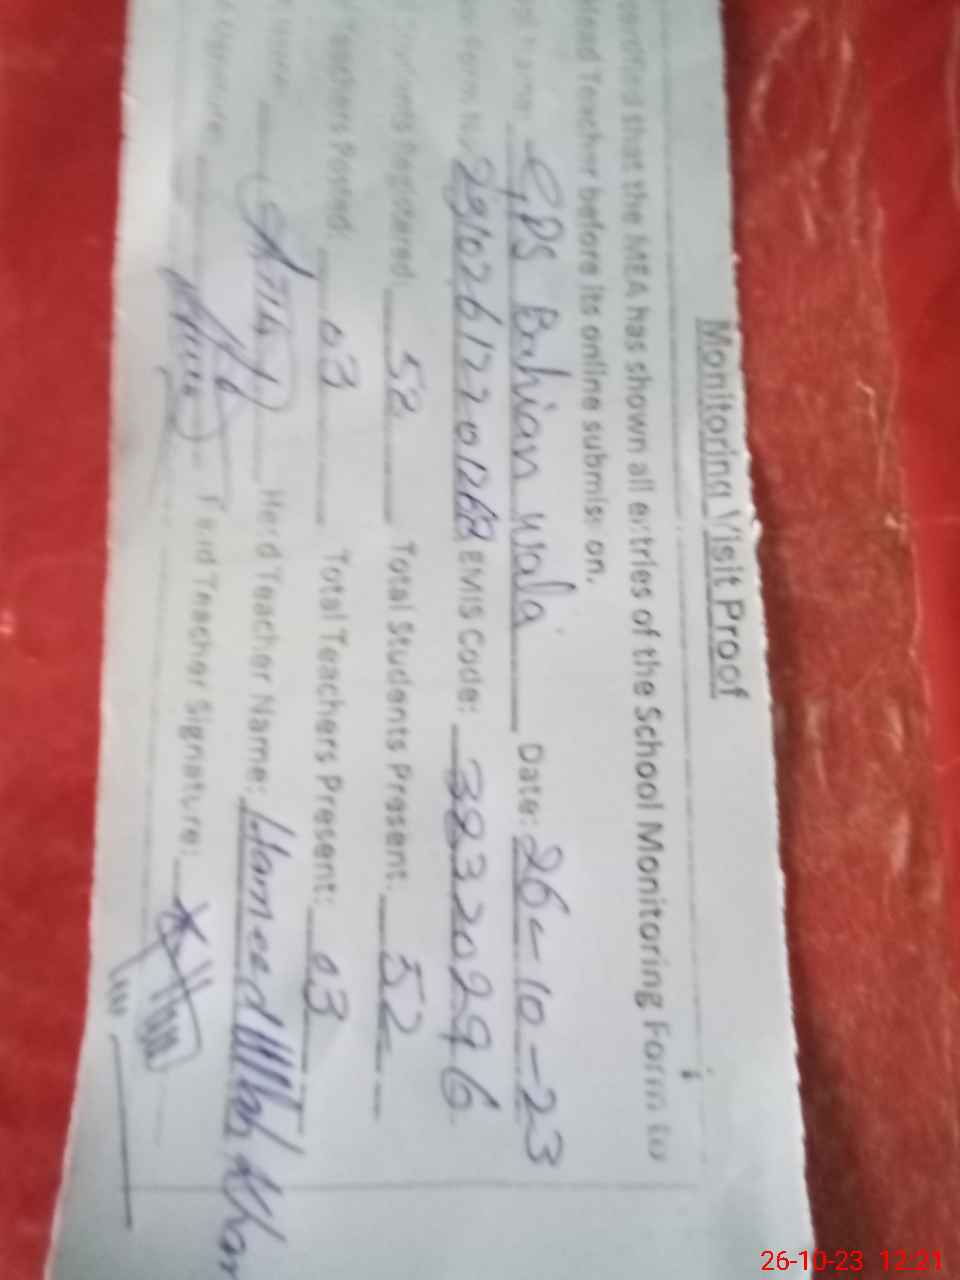 Monitoring Visit Proof
certified that the MEA has shown all entries of the School Monitoring Form to
Head Teacher before its online submission.
Name: GPS Bahian wala Date: 26-10-23
Form No. EMIS Code: 38320296
Students Registered: 52 Total Students Present: 52
Teachers Posted: 03 Total Teachers Present: 03
Name: Head Teacher Name: Hameedullah Khan
Signature: Head Teacher Signature:
26-10-23 12:21